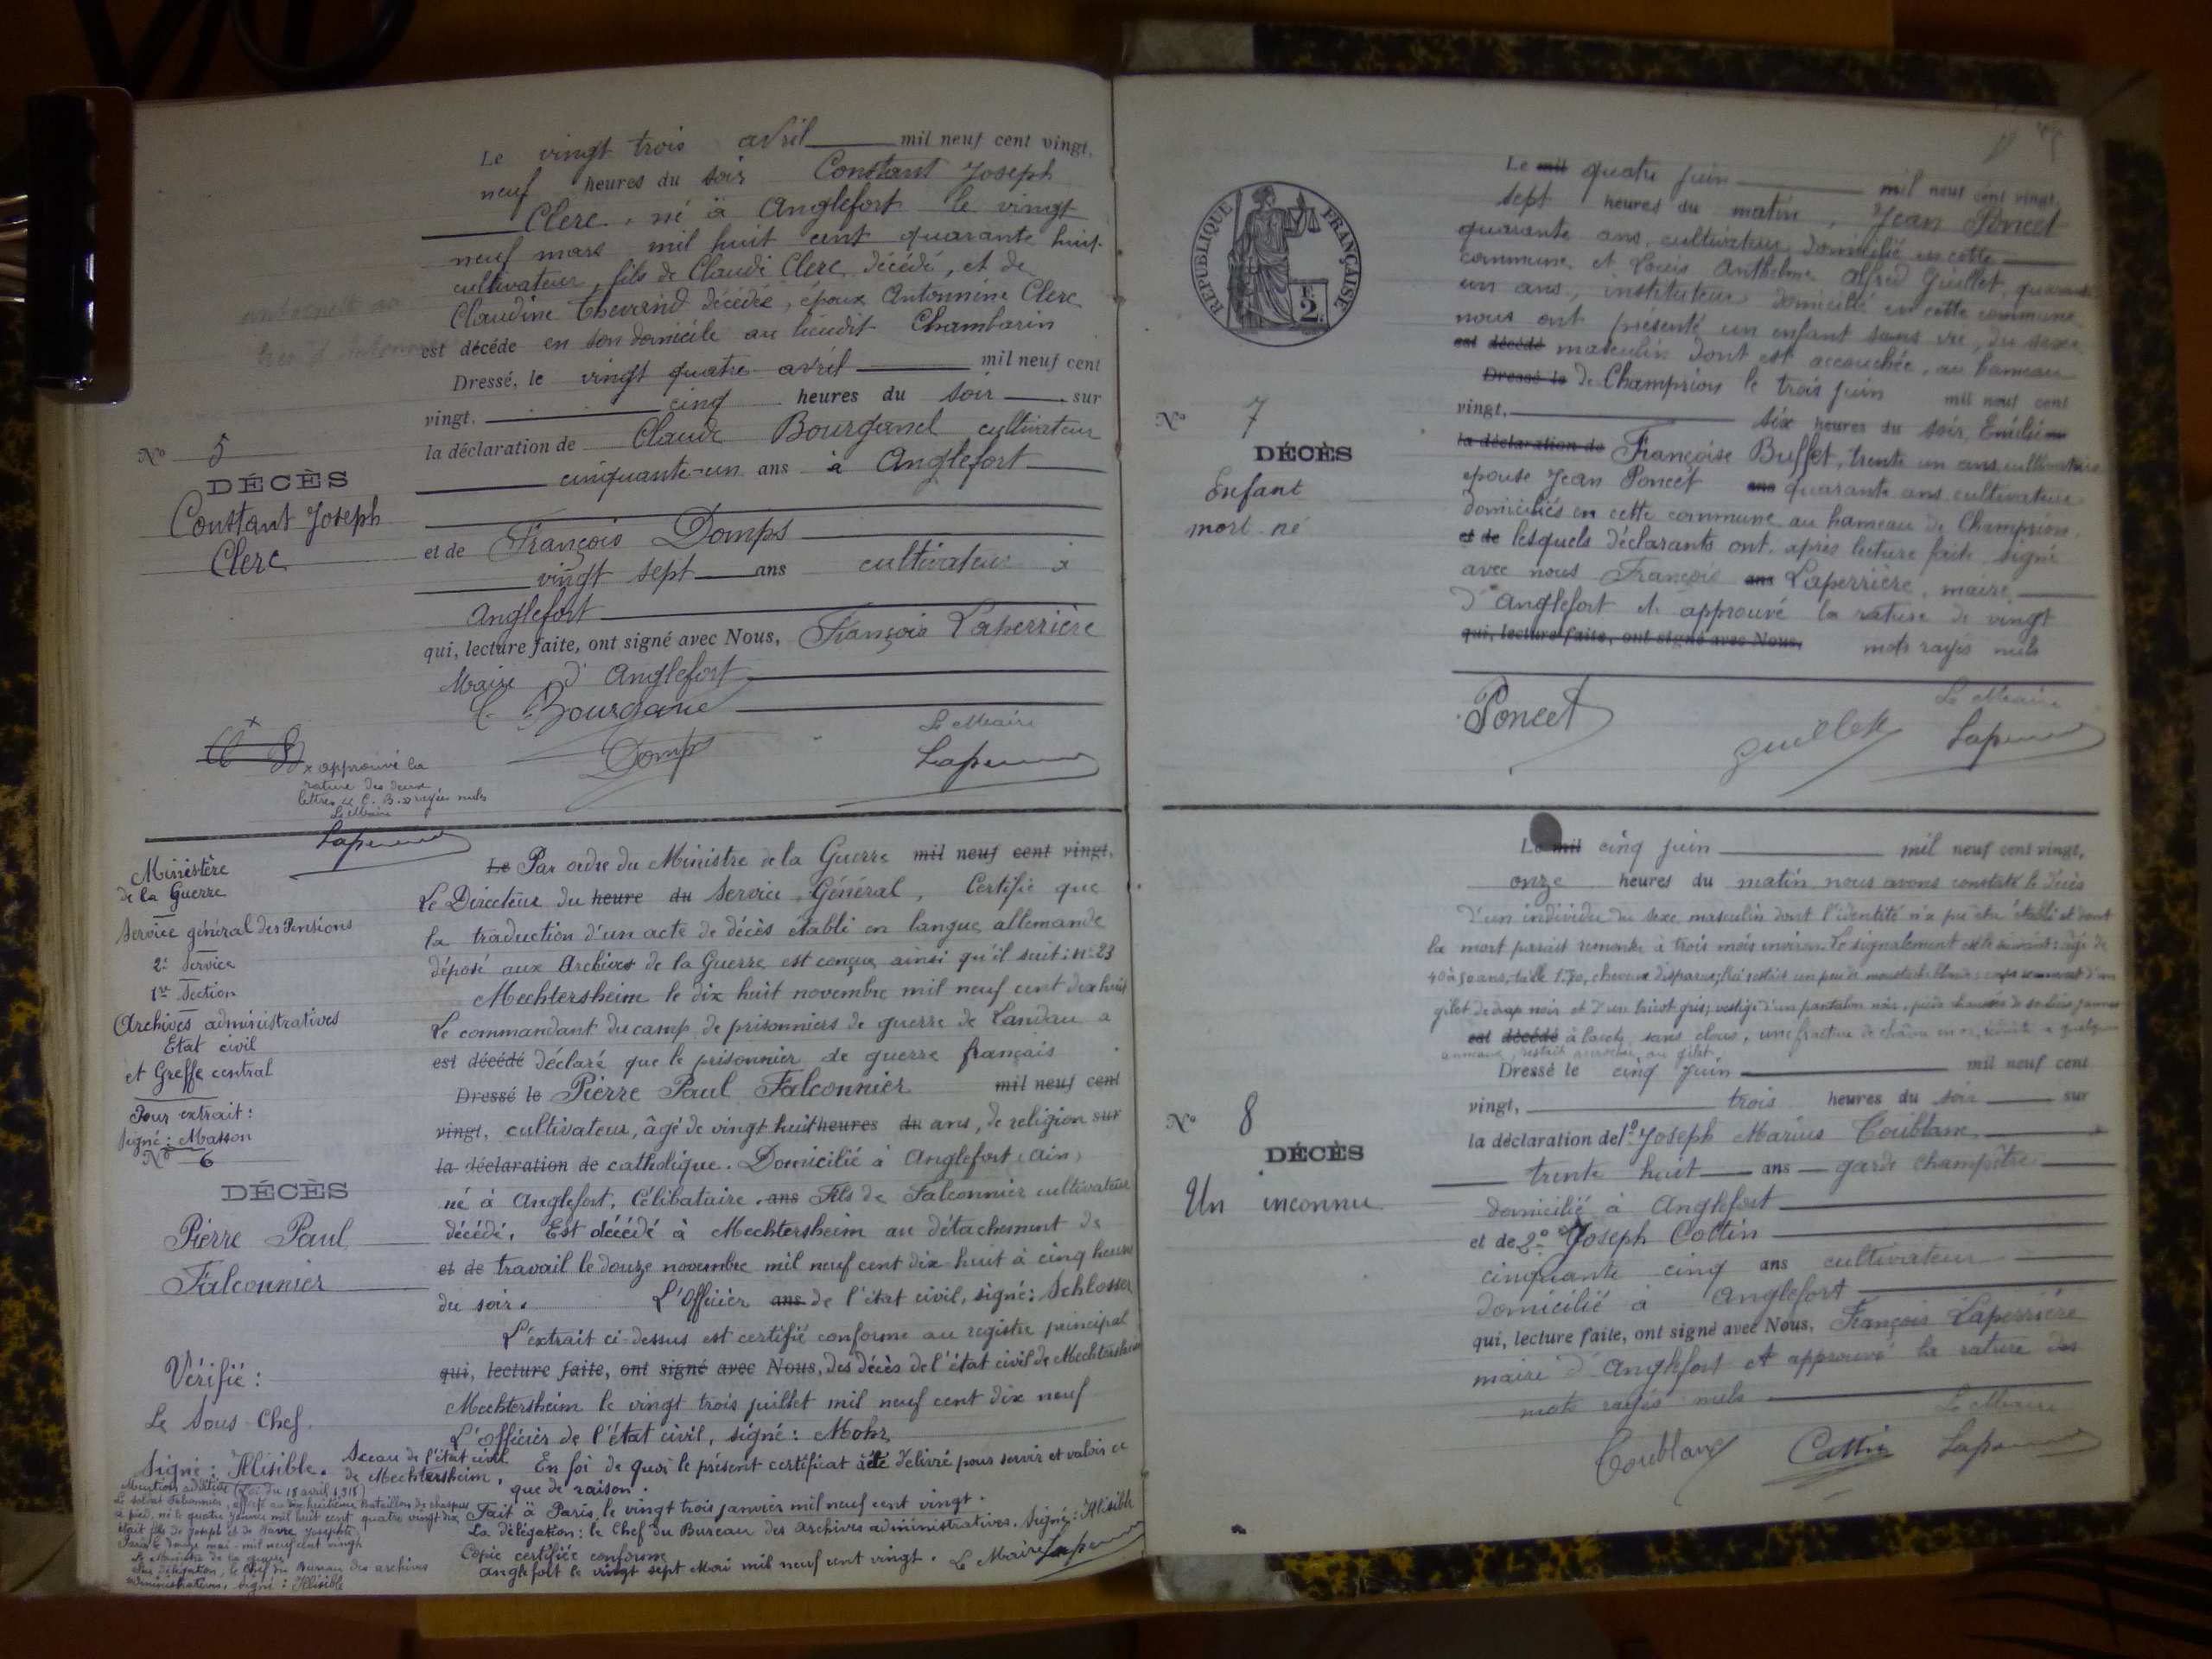 Le vingt trois avril mil neuf cent vingt,
neuf heures du soir Constant Joseph
Clerc, né à Anglefort le vingt
neuf mars mil huit cent quarante huit
cultivateur, fils de Claude Clerc décédé, et de
Claudine Thevand décédée, époux Antonnine Clerc
est décédé en son domicile au lieudit Chambarin
Dressé, le vingt quatre avril mil neuf cent
vingt, cinq heures du soir sur
la déclaration de Claude Bourganel cultivateur
cinquante-un ans à Anglefort
et de François Domps
vingt sept ans cultivateur à
Anglefort
qui, lecture faite, ont signé avec Nous, François Laperrière
Maire d'Anglefort
No 5
DÉCÈS
Constant Joseph
Clerc
C. Bourganel
Domps
Le Maire
Laperrière
x approuvé la
rature des deux
lettres « C. B. » rayées nuls
Le Maire
Laperrière
Ministère
de la Guerre
Service général des Pensions
2e Service
1re Section
Archives administratives
Etat civil
et Greffe central
Pour extrait :
Signé : Masson
No 6
DÉCÈS
Pierre Paul
Falconnier
Vérifié :
Le Sous-Chef
Signé : Illisible. Sceau de l'état civil
de Mechtersheim,
Le Par ordre du Ministre de la Guerre mil neuf cent vingt,
Le Directeur du heure du Service Général, Certifie que
la traduction d'un acte de décès établi en langue allemande
déposé aux Archives de la Guerre est conçue ainsi qu'il suit : No 23
Mechtersheim le dix huit novembre mil neuf cent dix huit
Le commandant du camp de prisonniers de guerre de Landau a
est décédé déclaré que le prisonnier de guerre français
Dressé le Pierre Paul Falconnier mil neuf cent
vingt, cultivateur, âgé de vingt huit heures du ans, de religion sur
la déclaration de catholique. Domicilié à Anglefort (Ain)
né à Anglefort, Célibataire. ans Fils de Falconnier cultivateur
décédé. Est décédé à Mechtersheim au détachement de
et de travail le douze novembre mil neuf cent dix huit à cinq heures
du soir. L'Officier ans de l'état civil, signé : Schlosser
L'extrait ci-dessus est certifié conforme au registre principal
qui, lecture faite, ont signé avec Nous, des décès de l'état civil de Mechtersheim
Mechtersheim le vingt trois juillet mil neuf cent dix neuf
L'Officier de l'état civil, signé : Mohr
En foi de quoi le présent certificat a été délivré pour servir et valoir ce
que de raison.
Fait à Paris, le vingt trois janvier mil neuf cent vingt.
La délégation : le Chef du Bureau des archives administratives. Signé : Illisible
Copie certifiée conforme
Anglefort le vingt sept Mai mil neuf cent vingt. Le Maire Laperrière
Mention additive (Loi du 18 avril 1918)
Le soldat Falconnier, affecté au huitième Bataillon de chasseurs
à pied, né le quatre Janvier mil huit cent quatre vingt dix
était fils de Joseph et de Favre, Josephte
Paris le douze mai mil neuf cent vingt
Le Ministre de la guerre
Par délégation, le Chef du Bureau des archives
administratives, signé : Illisible
RÉPUBLIQUE FRANÇAISE
F.
2.
No 7
DÉCÈS
Enfant
mort-né
Le mil quatre juin mil neuf cent vingt,
sept heures du matin, Jean Poncet
quarante ans, cultivateur domicilié en cette
commune, et Louis Anthelme Alfred Guillet, quarante
un ans, instituteur domicilié en cette commune
nous ont présenté un enfant sans vie, du sexe
est décédé masculin dont est accouchée, au hameau
Dressé le de Champrion le trois juin mil neuf cent
vingt, six heures du soir,
la déclaration de Françoise Buffet, trente un ans cultivatrice
épouse Jean Poncet ans quarante ans cultivateur
domiciliés en cette commune au hameau de Champrion,
et de lesquels déclarants ont, après lecture faite signé
avec nous François ans Laperrière, maire
d'Anglefort et approuvé la rature de vingt
qui, lecture faite, ont signé avec Nous, mots rayés nuls
Poncet
Guillet
Le Maire
Laperrière
No 8
DÉCÈS
Un inconnu
Le mil cinq juin mil neuf cent vingt,
onze heures du matin nous avons constaté le décès
d'un individu du sexe masculin dont l'identité n'a pu être établi et dont
la mort parait remonter à trois mois environ. Le signalement est le suivant : âgé de
40 à 50 ans, taille 1.70, cheveux disparus, un peu de moustache corps recouvert d'un
gilet de drap noir et d'un tricot gris, vestige d'un pantalon noir, pieds chaussés de souliers jaunes
est décédé à lacets sans clous, une fraction de chaîne à quelques
anneaux, restait accrochée au gilet
Dressé le cinq juin mil neuf cent
vingt, trois heures du soir sur
la déclaration de 1o Joseph Marius Coublanc
trente huit ans garde champêtre
domicilié à Anglefort
et de 2o Joseph Cottin
cinquante cinq ans cultivateur
domicilié à Anglefort
qui, lecture faite, ont signé avec Nous, François Laperrière
maire d'Anglefort et approuvé la rature des
mots rayés nuls
Coublanc
Cottin
Le Maire
Laperrière